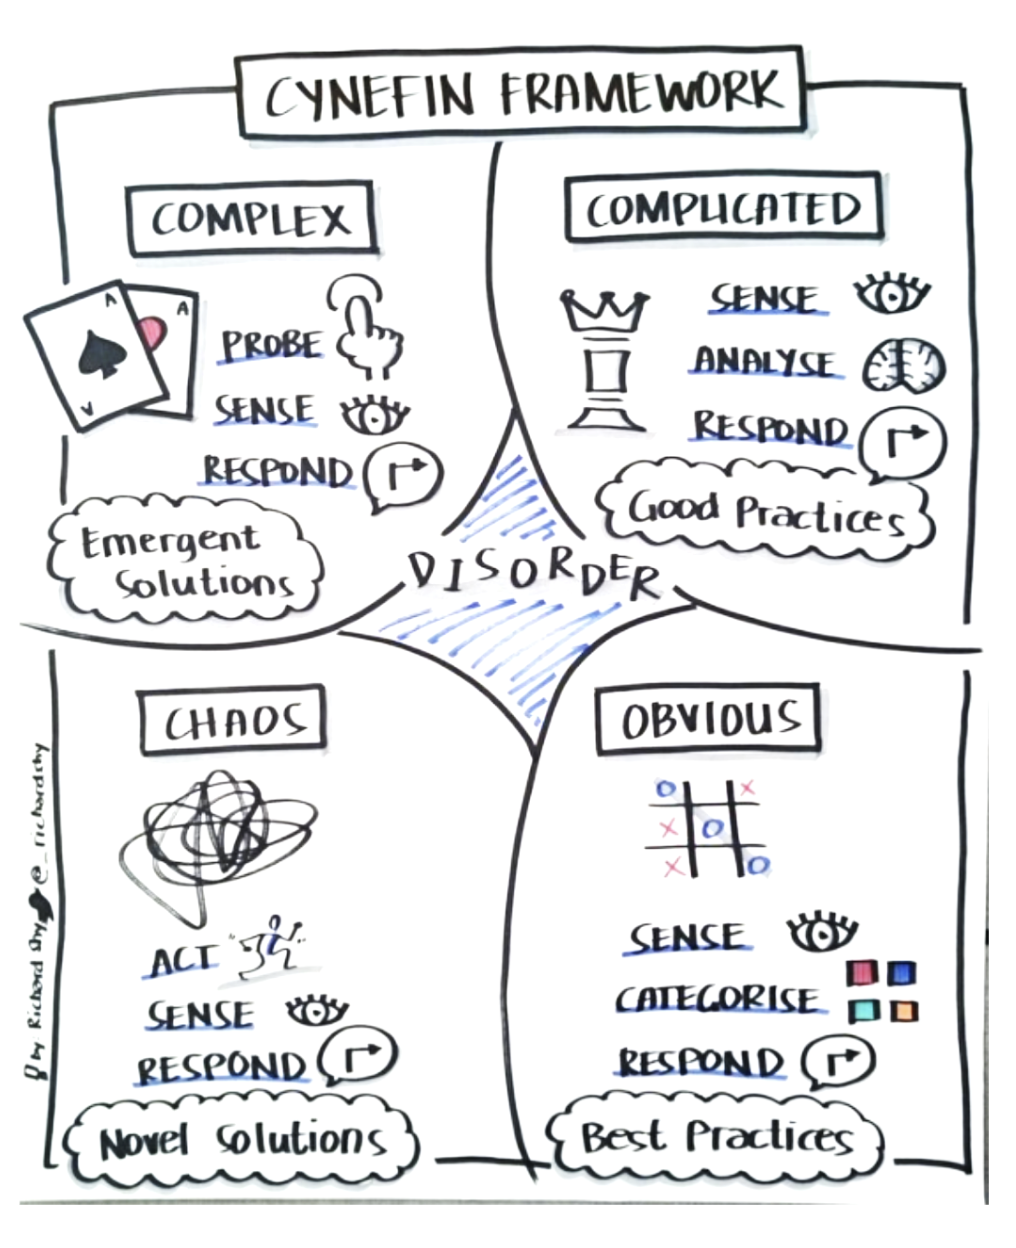 CYNEFIN FRAMEWORK
COMPLEX
A
A
A
PROBE
SENSE
RESPOND
Emergent
Solutions
COMPLICATED
SENSE
ANALYSE
RESPOND
Good Practices
DISORDER
CHAOS
ACT
SENSE
RESPOND
Novel Solutions
OBVIOUS
O X
X O
X O
SENSE
CATEGORISE
RESPOND
Best Practices
by Richard Shy @_richardshy